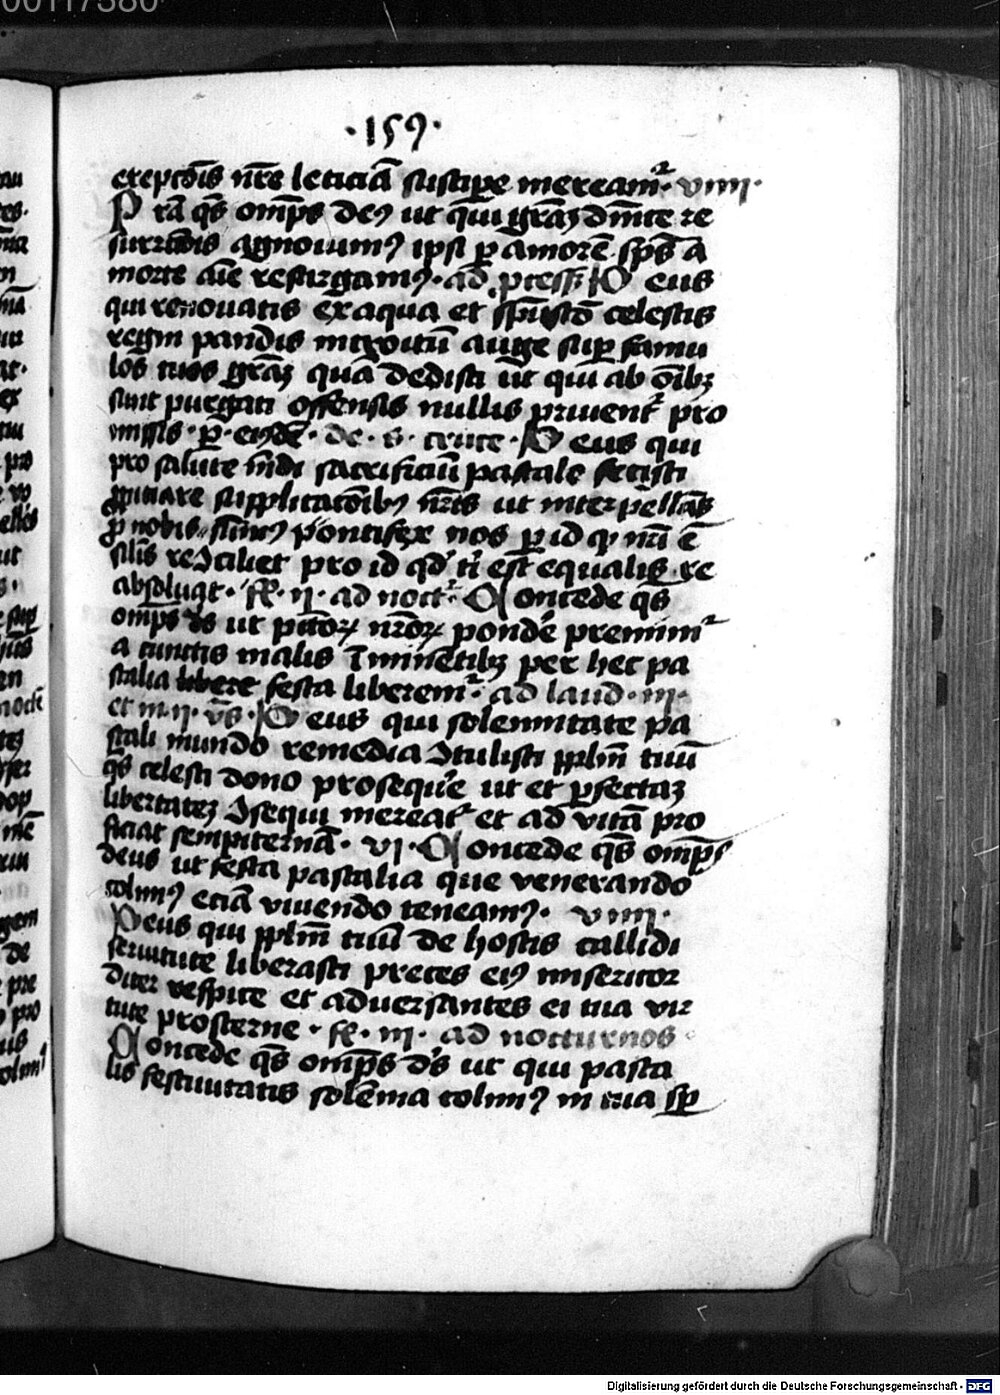 00117380
·159·
exepcōis nr̄e leticiā suscipe meream᷑. viiii.
P rā qs̄ omp̄s deꝰ ut qui grāꝫ dn̄ice re
surrectōis agnouimꝰ ipsi ꝑ amorē sps̄ a
morte aīe resurgamꝰ. ad. press. D eus
qui renouatis ex aqua et spū sctō celestis
regni pandis introitū auge suꝑ famu
los tuos grāꝫ quā dedisti ut qui ab oībꝫ
sunt purgati offensis nullis priuent᷑ pro
missis. ꝑ. eundē. de. s. cruce. D eus qui
pro salute mūdi sacrificiū pascale fecisti
ꝓpiciare supplicatōibꝰ nr̄is ut interpellās
ꝓ nobis sūmꝰ pontifex nos ꝑ id qꝫ nr̄i ē
silīs recōciliet pro id qd̓ ti est equalis re
absoluat. fr̄. ii. ad noct᷑. C oncede qs
omp̄s ds ut pctōꝝ nr̄oꝝ pondē premim᷑
a cunctis malis īminētibꝫ per hec pa
scalia libere festa liberem᷑. ad laud. iii.
et in. ii. vs̄. D eus qui solennitate pa
scali mundo remedia ɔtulisti pplm̄ tuū
qs̄ celesti dono proseque ut et ꝑfectaꝫ
libertateꝫ ɔsequi mereat᷑ et ad vitā pro
ficiat sempiternā. vi. C oncede qs̄ omp̄s
deus ut festa pascalia que venerando
colimꝰ eciā viuendo teneamꝰ. viiii.
Deus qui pplm̄ tuū de hostis callidi
seruitute liberasti preces eiꝰ misericor
diter respice et aduersantes ei tua vir
tute prosterne. fr̄. iii. ad nocturnos
C oncede qs̄ omp̄s ds̄ ut qui pasca
lis festiuitatis solēnia colimꝰ in tua sp̄
Digitalisierung gefördert durch die Deutsche Forschungsgemeinschaft - DFG